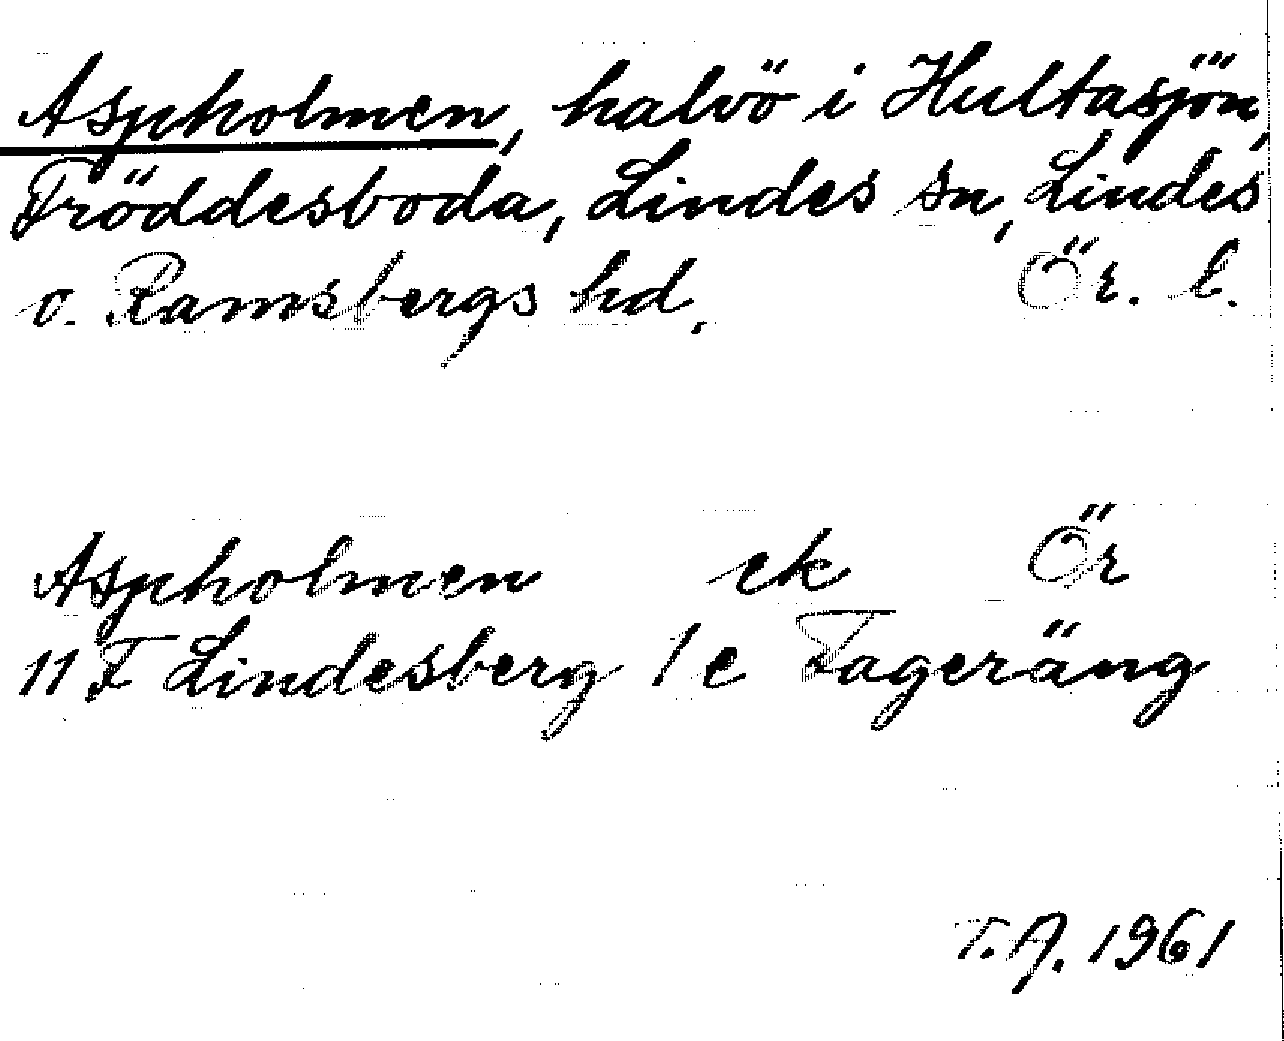 Aspholmen, halvö i Hultasjön,
Fröddesboda, Lindes sn, Lindes
o. Ramsbergs hd. Ör. l.
Aspholmen ek Ör
11 F Lindesberg 1 e Fageräng
T.A. 1961